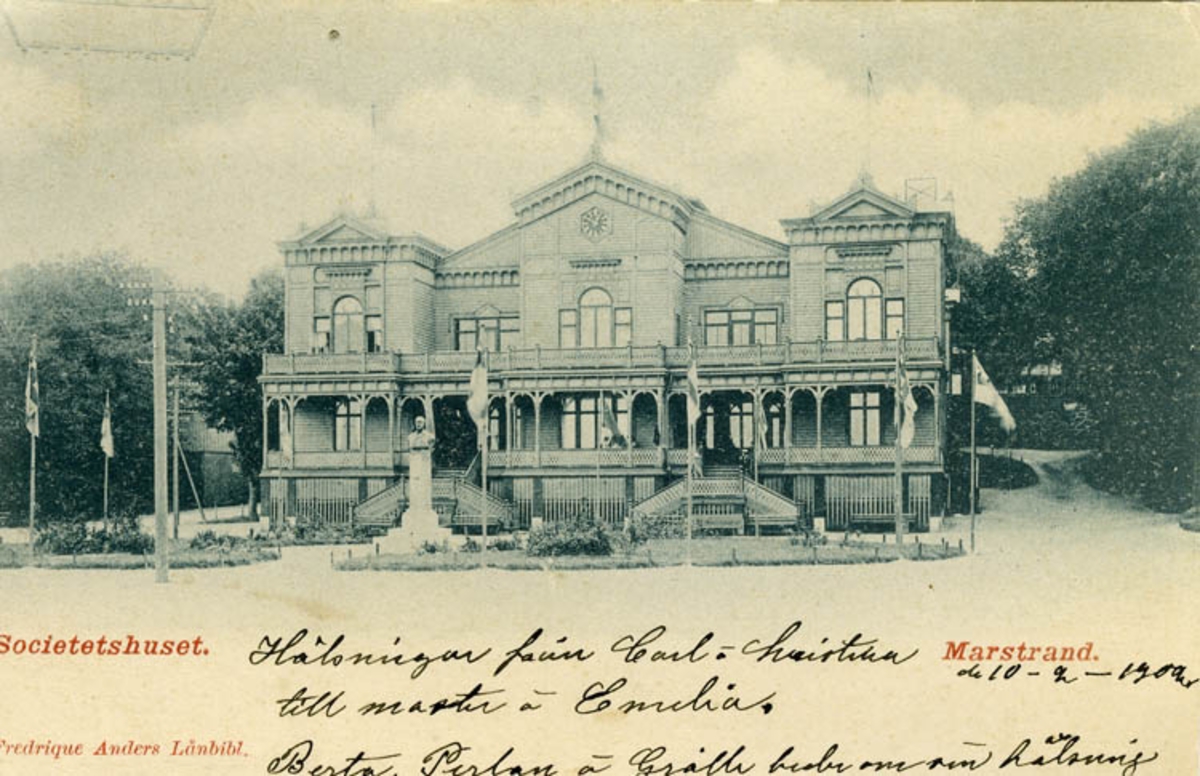 Societetshuset.
Hälsningar från Carl å Kristina
Marstrand.
de 10 - 2 - 1902
till moster å Emelia.
Fredrique Anders Lånbibl.
Berta, Perlan å Grålle beder om sin hälsning